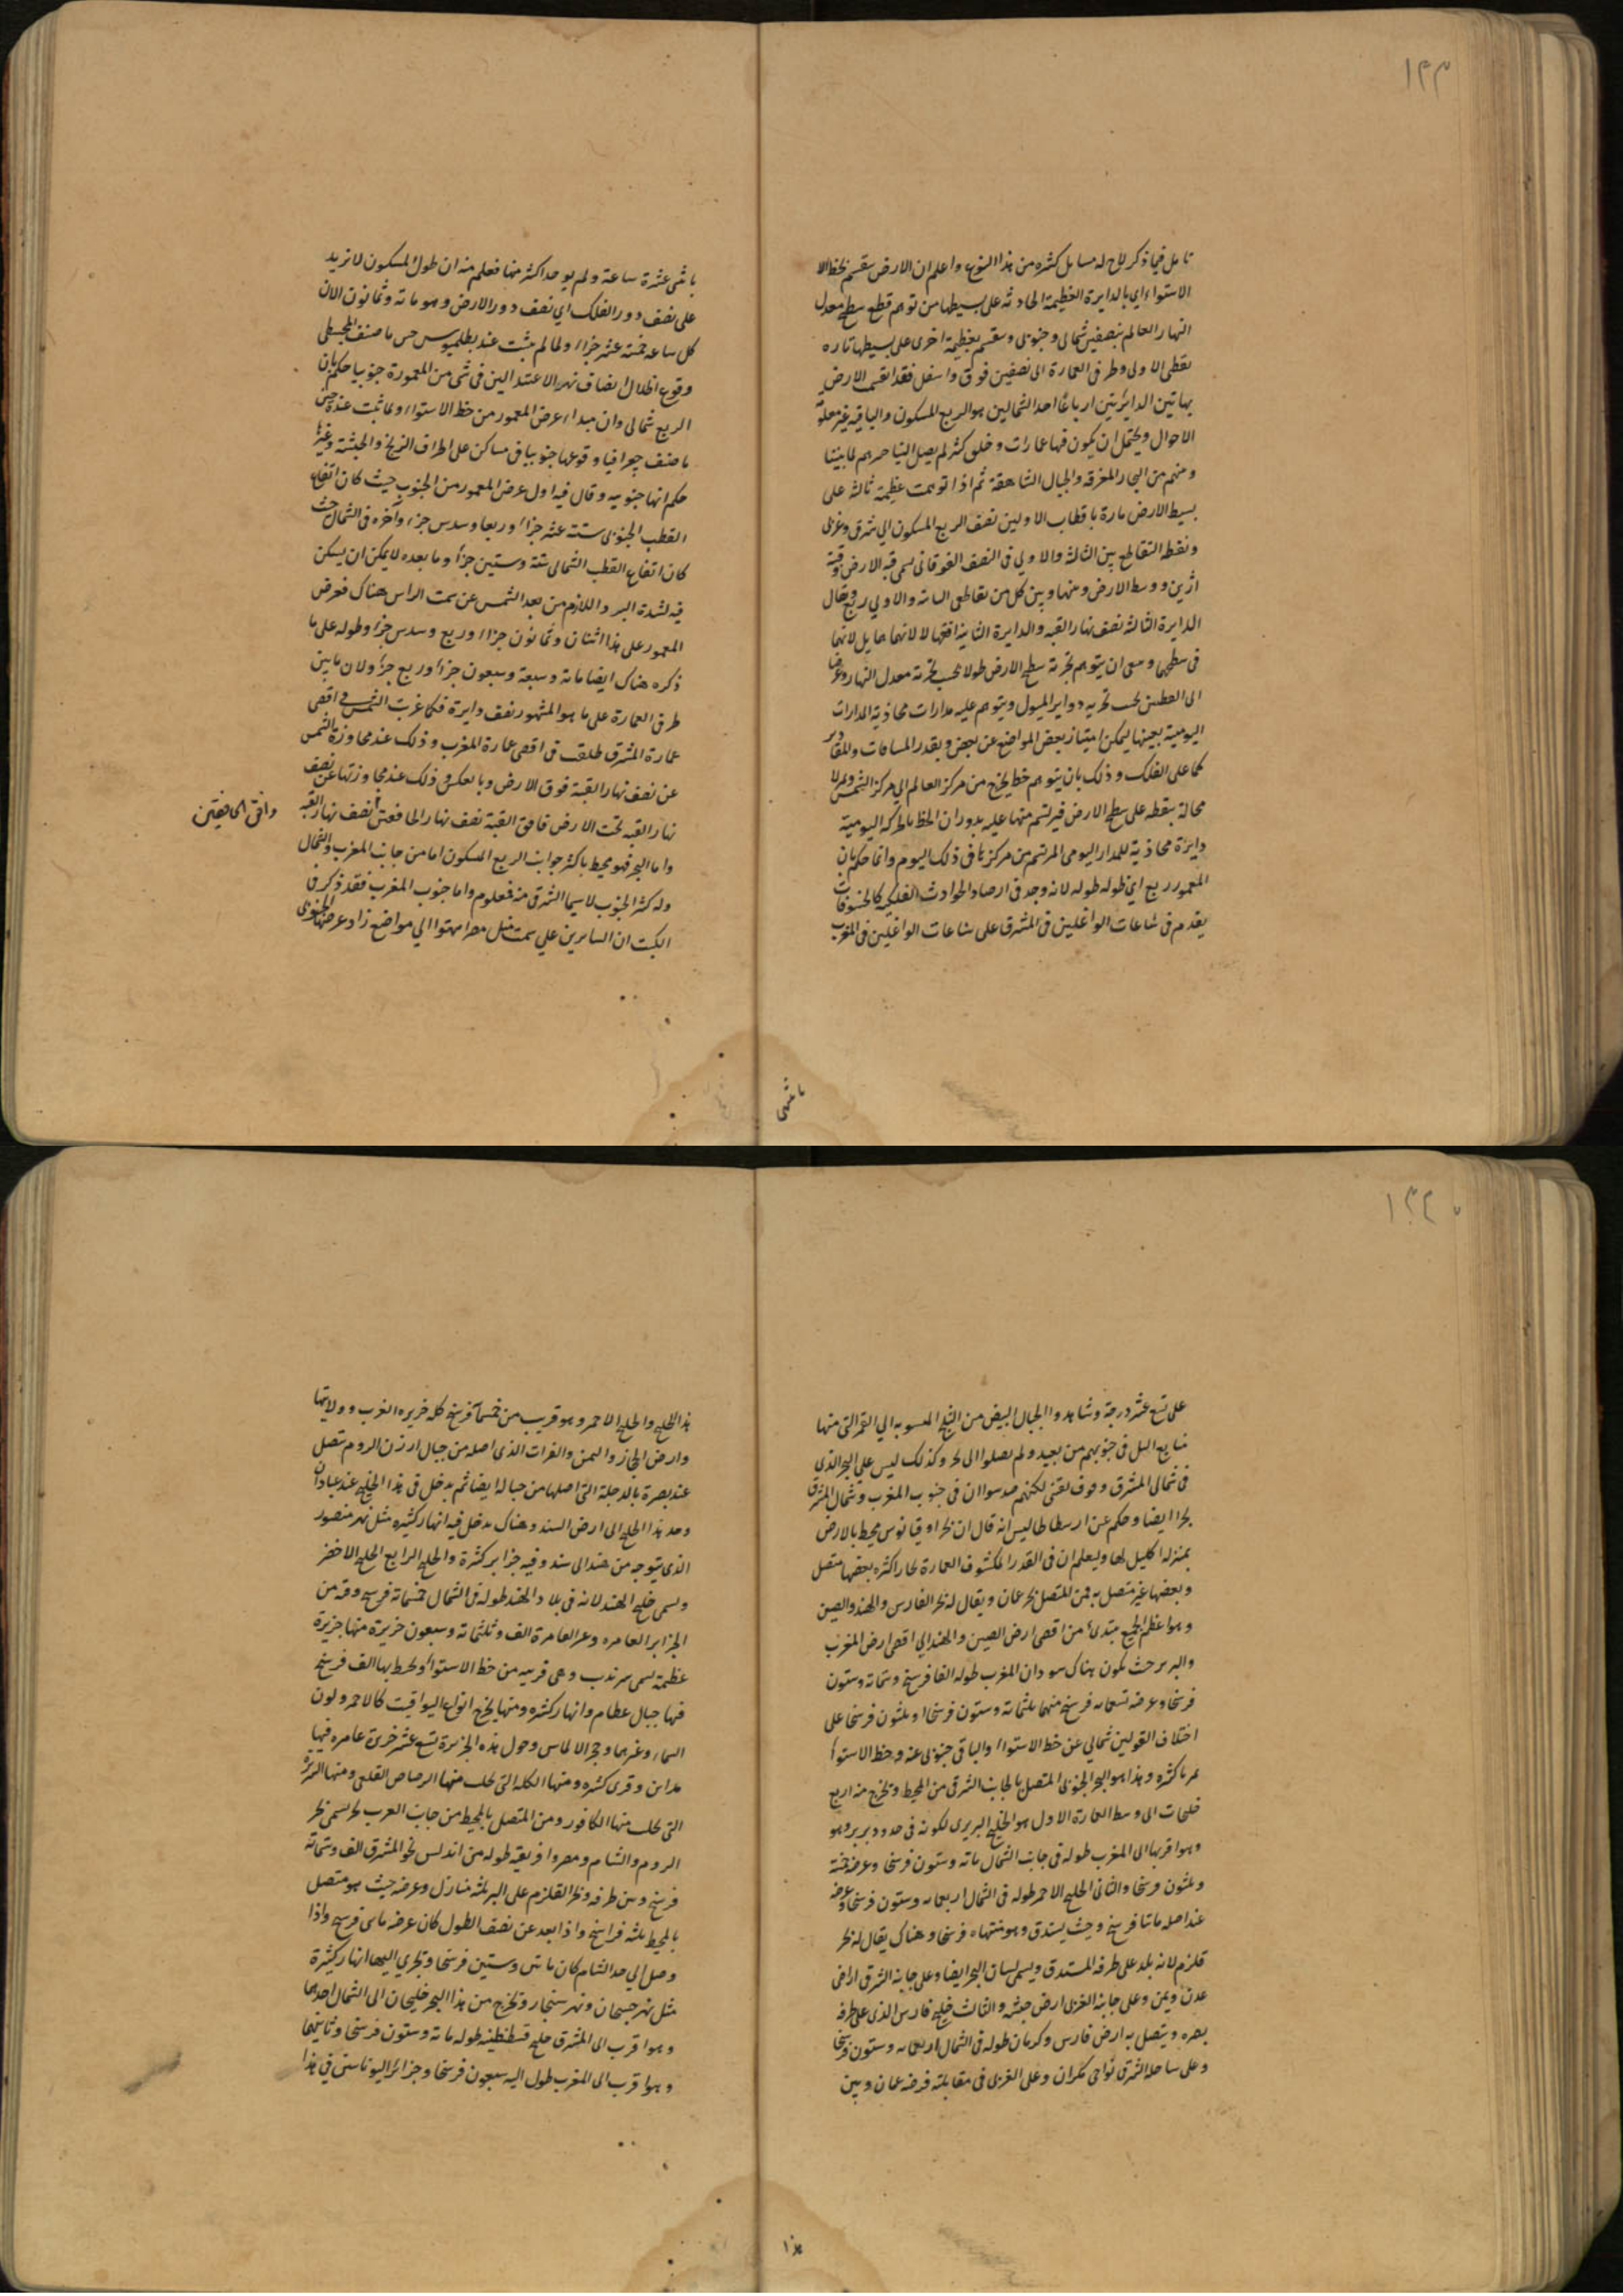 ١٣٣
تامل فيما ذكر لاح له مسايل كثيره من هذا النوع واعلم ان الارض ينقسم بخط الا
الاستواء اي بالدايرة العظيمة الحادثه على بسيطها من توهم قطع سطح معدل
النهار العالم بنصفين شمالي وجنوبي وينقسم بعظيمة اخرى على بسيطها تاره
بقطبي الاولى وطرفي العمارة الى نصفين فوق واسفل فقد انقسم الارض
بهاتين الدايرتين ارباعا احد الشماليين هو الربع المسكون والباقيه غير معلومة
الاحوال ويحتمل ان يكون فيها عمارات وخلق كثير لم يصل الينا خبرهم لما بيننا
وبينهم من البحار المغرقه والجبال الشاهقة ثم اذا توهمت عظيمة ثالثه على
بسيط الارض مارة باقطاب الاوليين نصف الربع المسكون الى شرقي وغربي
ونقطه التقاطع بين الثالثة والاولى في النصف الفوقاني تسمى قبه الارض وقبة
ازين ووسط الارض ومنها وبين كل من تقاطعي الثانيه والاولى ربع ويقال
الدايرة الثالثة نصف نهار القبه والدايرة الثانية افقها لا لانهما حايل لانهما
في سطحهما ومعنى ان يتوهم تجزية سطح الارض طولا بحسب تجزية معدل النهار وعرضا
الى القطبين بحسب تجزيه دواير الميول ويتوهم عليه مدارات محاذية المدارات
اليومية بعينها ليمكن امتياز بعض المواضع عن بعض ويقدر المسافات والمقادير
كما على الفلك وذلك بان يتوهم خط يخرج من مركز العالم الى مركز الشمس ويمر لا
محالة بنقطه على سطح الارض فيرتسم منها عليه بدوران الخط بالحركه اليومية
دايرة محاذية للمدار اليومي المرتسم من مركزها في ذلك اليوم وانما حكم بان
المعمور ربع اي طوله طوله لانه وجد في ارصاد الحوادث الفلكيه كالخسوفات
يقدم في ساعات الواغلين في المشرق على ساعات الواغلين في المغرب
باثني
باثني عشرة ساعة ولم يوجد اكثر منها فعلم منه ان طول المسكون لا تزيد
على نصف دور الفلك اي نصف دور الارض وهو مائة وثمانون لان
كل ساعه خمسة عشر جزاا ولما لم يثبت عند بطلميوس حين ما صنف المجسطي
وقوع اظلال انصاف نهر الاعتدالين في شي من المعمورة جنوبيا حكم بان
الربع شمالي وان مبدا عرض المعمور من خط الاستواء ولما ثبت عنده حين
ما صنف جغرافيا وقوعها جنوبيا في مساكن على اطراف الزنج والحبشة وغيرها
حكم انها جنوبيه وقال فيه اول عرض المعمور من الجنوب حيث كان ارتفاع
القطب الجنوبي ستة عشر جزاا وربعا وسدس جزء وآخره في الشمال حيث
كان ارتفاع القطب الشمالي ستة وستين جزءا وما بعده لا يمكن ان يسكن
فيه لشدة البرد اللازم من بعد الشمس عن سمت الراس هناك فعرض
المعمور على هذا اثنان وثمانون جزاا وربع وسدس جزء وطوله على ما
ذكره هناك ايضا مائة وسبعة وسبعون جزءا وربع جزء ولان ما بين
طرفي العمارة على ما هو المشهور نصف دايرة فكما غربت الشمس في اقصى
عمارة المشرق طلعت في اقصى عمارة المغرب وذلك عند مجاوزة الشمس
عن نصف نهار القبة فوق الارض وبالعكس وذلك عند مجاوزتها عن نصف
نهار القبه تحت الارض فافق القبة نصف نهار الخافقين نصف نهار القبه
وافق الخافقين
واما البحر فهو محيط باكثر جوانب الربع المسكون اما من جانب المغرب والشمال
وله كثر الجنوب لاسيما الشرقي منه فمعلوم واما جنوب المغرب فقد ذكر في
الكتب ان السايرين على سمت منبل مصر انتهوا الى مواضع زاد عرضها الجنوبي
١٣٤
على تسع عشر درجة وشاهدوا الجبال البيض من الثلج المنسوبه الى القمر التي منها
منابع النيل في جنوبهم من بعيد ولم يصلوا الى بحر وكذلك ليس على البحر الذي
في شمالي المشرق وقوف يقيني لكنهم حدسوا ان في جنوب المغرب وشمال المشرق
بحرا ايضا وحكم عن ارسطاطاليس انه قال ان بحر اوقيانوس محيط بالارض
بمنزلة اكليل لها وليعلم ان في القدر المكشوف العمارة بحارا كثره بعضها متصل
وبعضها غير متصل به فمن المتصل بحر عمان ويقال له بحر الفارس والهند والصين
وهو اعظم الجميع مبتدئ من اقصى ارض الصين والهند الى اقصى ارض المغرب
والبربر حيث يكون هناك سودان المغرب طوله الفا فرسخ وستمائة وستون
فرسخا وعرضه تسعمائه فرسخ منها ثلثمائة وستون فرسخا او ثلثون فرسخا على
اختلاف القولين شمالي عن خط الاستواء والباقي جنوبي عنه وخط الاستواء
يمر باكثره وهذا هو البحر الجنوبي المتصل بالجانب الشرقي من المحيط وتخرج منه اربع
خلجات الى وسط العمارة الاول هو الخليج البربري لكونه في حدود بربر وهو
وهو اقربها الى المغرب طوله في جانب الشمال مائه وستون فرسخا وعرضه خمسة
وثلثون فرسخا والثاني الخليج الاحمر طوله في الشمال اربعمائه وستون فرسخا وعرضه
عند اصله مائتا فرسخ وحيث يستدق وهو منتهاه فرسخا وهناك يقال له بحر
قلزم لانه بلد على طرفه المستدق ويسمى لسان البحر ايضا وعلى جانبه الشرقي اراضي
عدن ويمن وعلى جانبه الغربي ارض حبشه والثالث خليج فارس الذي على طرفه
بصره ويتصل به ارض فارس وكرمان طوله في الشمال اربعمائه وستون فرسخا
وعلى ساحله الشرقي نواحي مكران وعلى الغربي في مقابلته فرضه عمان وبين
هذا
هذا الخليج والخليج الاحمر وهو قريب من خمسمائة فرسخ كله جزيره العرب وولايتها
وارض الحجاز واليمن والفرات الذي اصله من جبال ارزن الروم تتصل
عند بصرة بالدجلة التي اصلها من جبالها ايضا ثم يدخل في هذا الخليج عند عبادان
وحد هذا الخليج الى ارض السند وهناك يدخل فيه انهار كثيره مثل نهر منصور
الذي يتوجه من هند الى سند وفيه جزاير كثرة والخليج الرابع الخليج الاخضر
ويسمى خليج الهند لانه في بلاد الهند طوله في الشمال خمسمائة فرسخ وفيه من
الجزاير العامره وغير العامرة الف وثلثمائة وسبعون جزيرة منها جزيرة
عظيمة تسمى سرنديب وهي قريبه من خط الاستواء وتحيط بها الف فرسخ
فيها جبال عظام وانهار كثره ومنها يخرج انواع اليواقيت كالاحمر ولون
السماء وغيرهما وحجر الالماس وحول هذه الجزيرة تسع عشر جزيرة عامره فيها
مداين وقرى كثره ومنها الكله التي يجلب منها الرصاص القلعي ومنها السريره
التي يجلب منها الكافور ومن المتصل بالمحيط من جانب الغرب بحر يسمى بحر
الروم والشام ومصر وافريقيه طوله من اندلس نحو المشرق الف وستمائة
فرسخ وبين طرفه وبحر القلزم على البر ثلثه منازل وعرضه حيث هو متصل
بالمحيط ثلثه فراسخ واذا بعد عن نصف الطول كان عرضه مائتي فرسخ واذا
وصل الى حد الشام كان مائتين وستين فرسخا وتجري اليها انهار كثيرة
مثل نهر جيحان ونهر سنجار وتخرج من هذا البحر خليجان الى الشمال احدهما
وهو اقرب الى المشرق خليج قسطنطنيه طوله مائة وستون فرسخا وثانيهما
وهو اقرب الى المغرب طول اليه سبعون فرسخا وجزائر اليونانيين في هذا